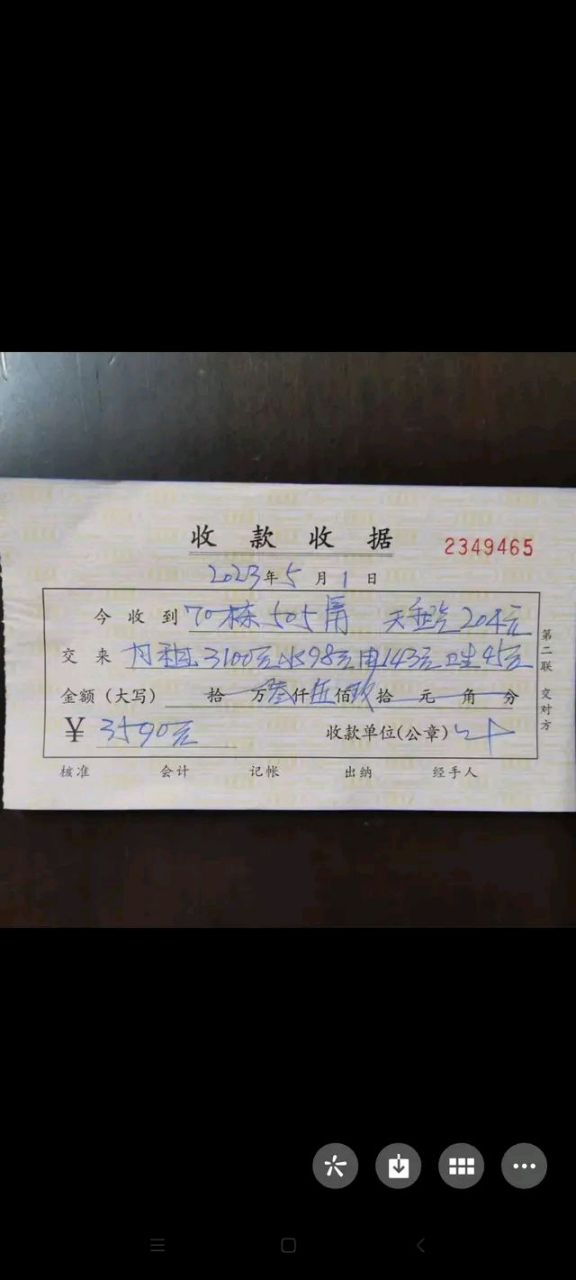 收款收据
2349465
2023年5月1日
今收到70栋505房 天然气204元
交来 月租 3100元 水98元 电143元 卫生45元
金额（大写） 拾 万 叁仟 伍佰 玖拾 元 角 分
¥ 3590元 收款单位(公章)
核准 会计 记帐 出纳 经手人
第二联 交对方